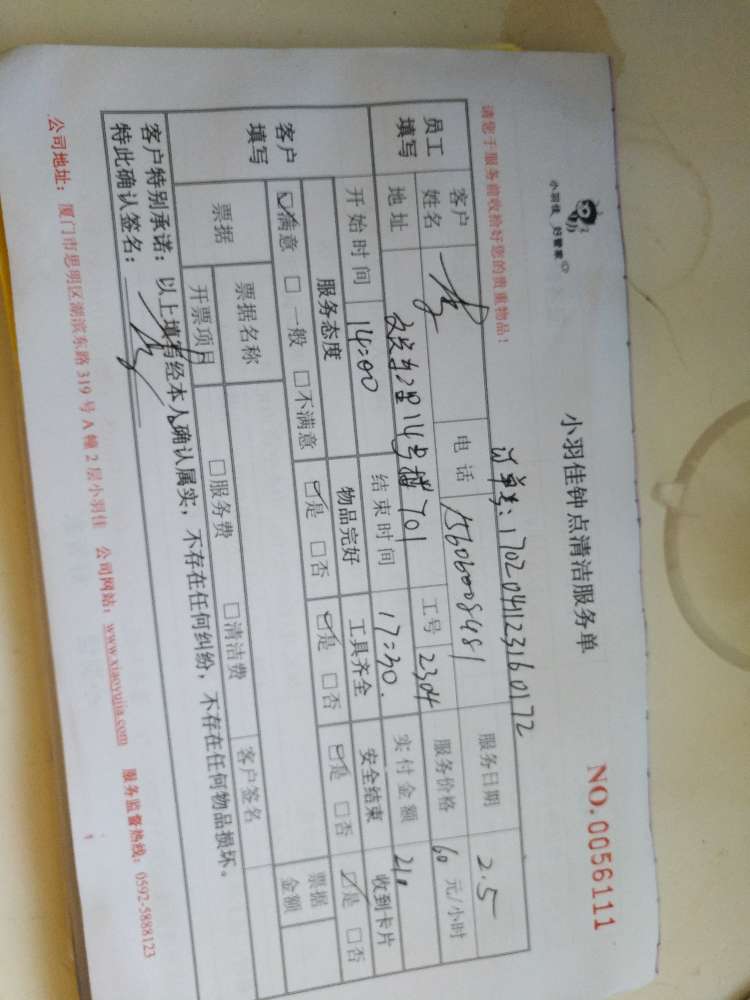 小羽佳 好管家
小羽佳钟点清洁服务单
NO.0056111
请您于服务前收拾好您的贵重物品！
订单号：17020411231601 72
员工填写 客户姓名 电话 15606008481 服务日期 2.5
地址 14号楼 701 工号 2304 服务价格 60 元/小时
开始时间 14:00 结束时间 17:30. 实付金额 210
客户填写 服务态度 物品完好 工具齐全 安全结束 收到卡片
☑满意 □一般 □不满意 ☑是 □否 ☑是 □否 ☑是 □否 ☑是 □否
票据 票据名称 客户签名 票据金额
开票项目 □服务费 □清洁费
客户特别承诺：以上填写经本人确认属实，不存在任何纠纷，不存在任何物品损坏。
特此确认签名：
公司地址：厦门市思明区湖滨东路 319 号 A 幢 2 层小羽佳 公司网站：www.xiaoyujia.com 服务监督热线：0592-5888123
1